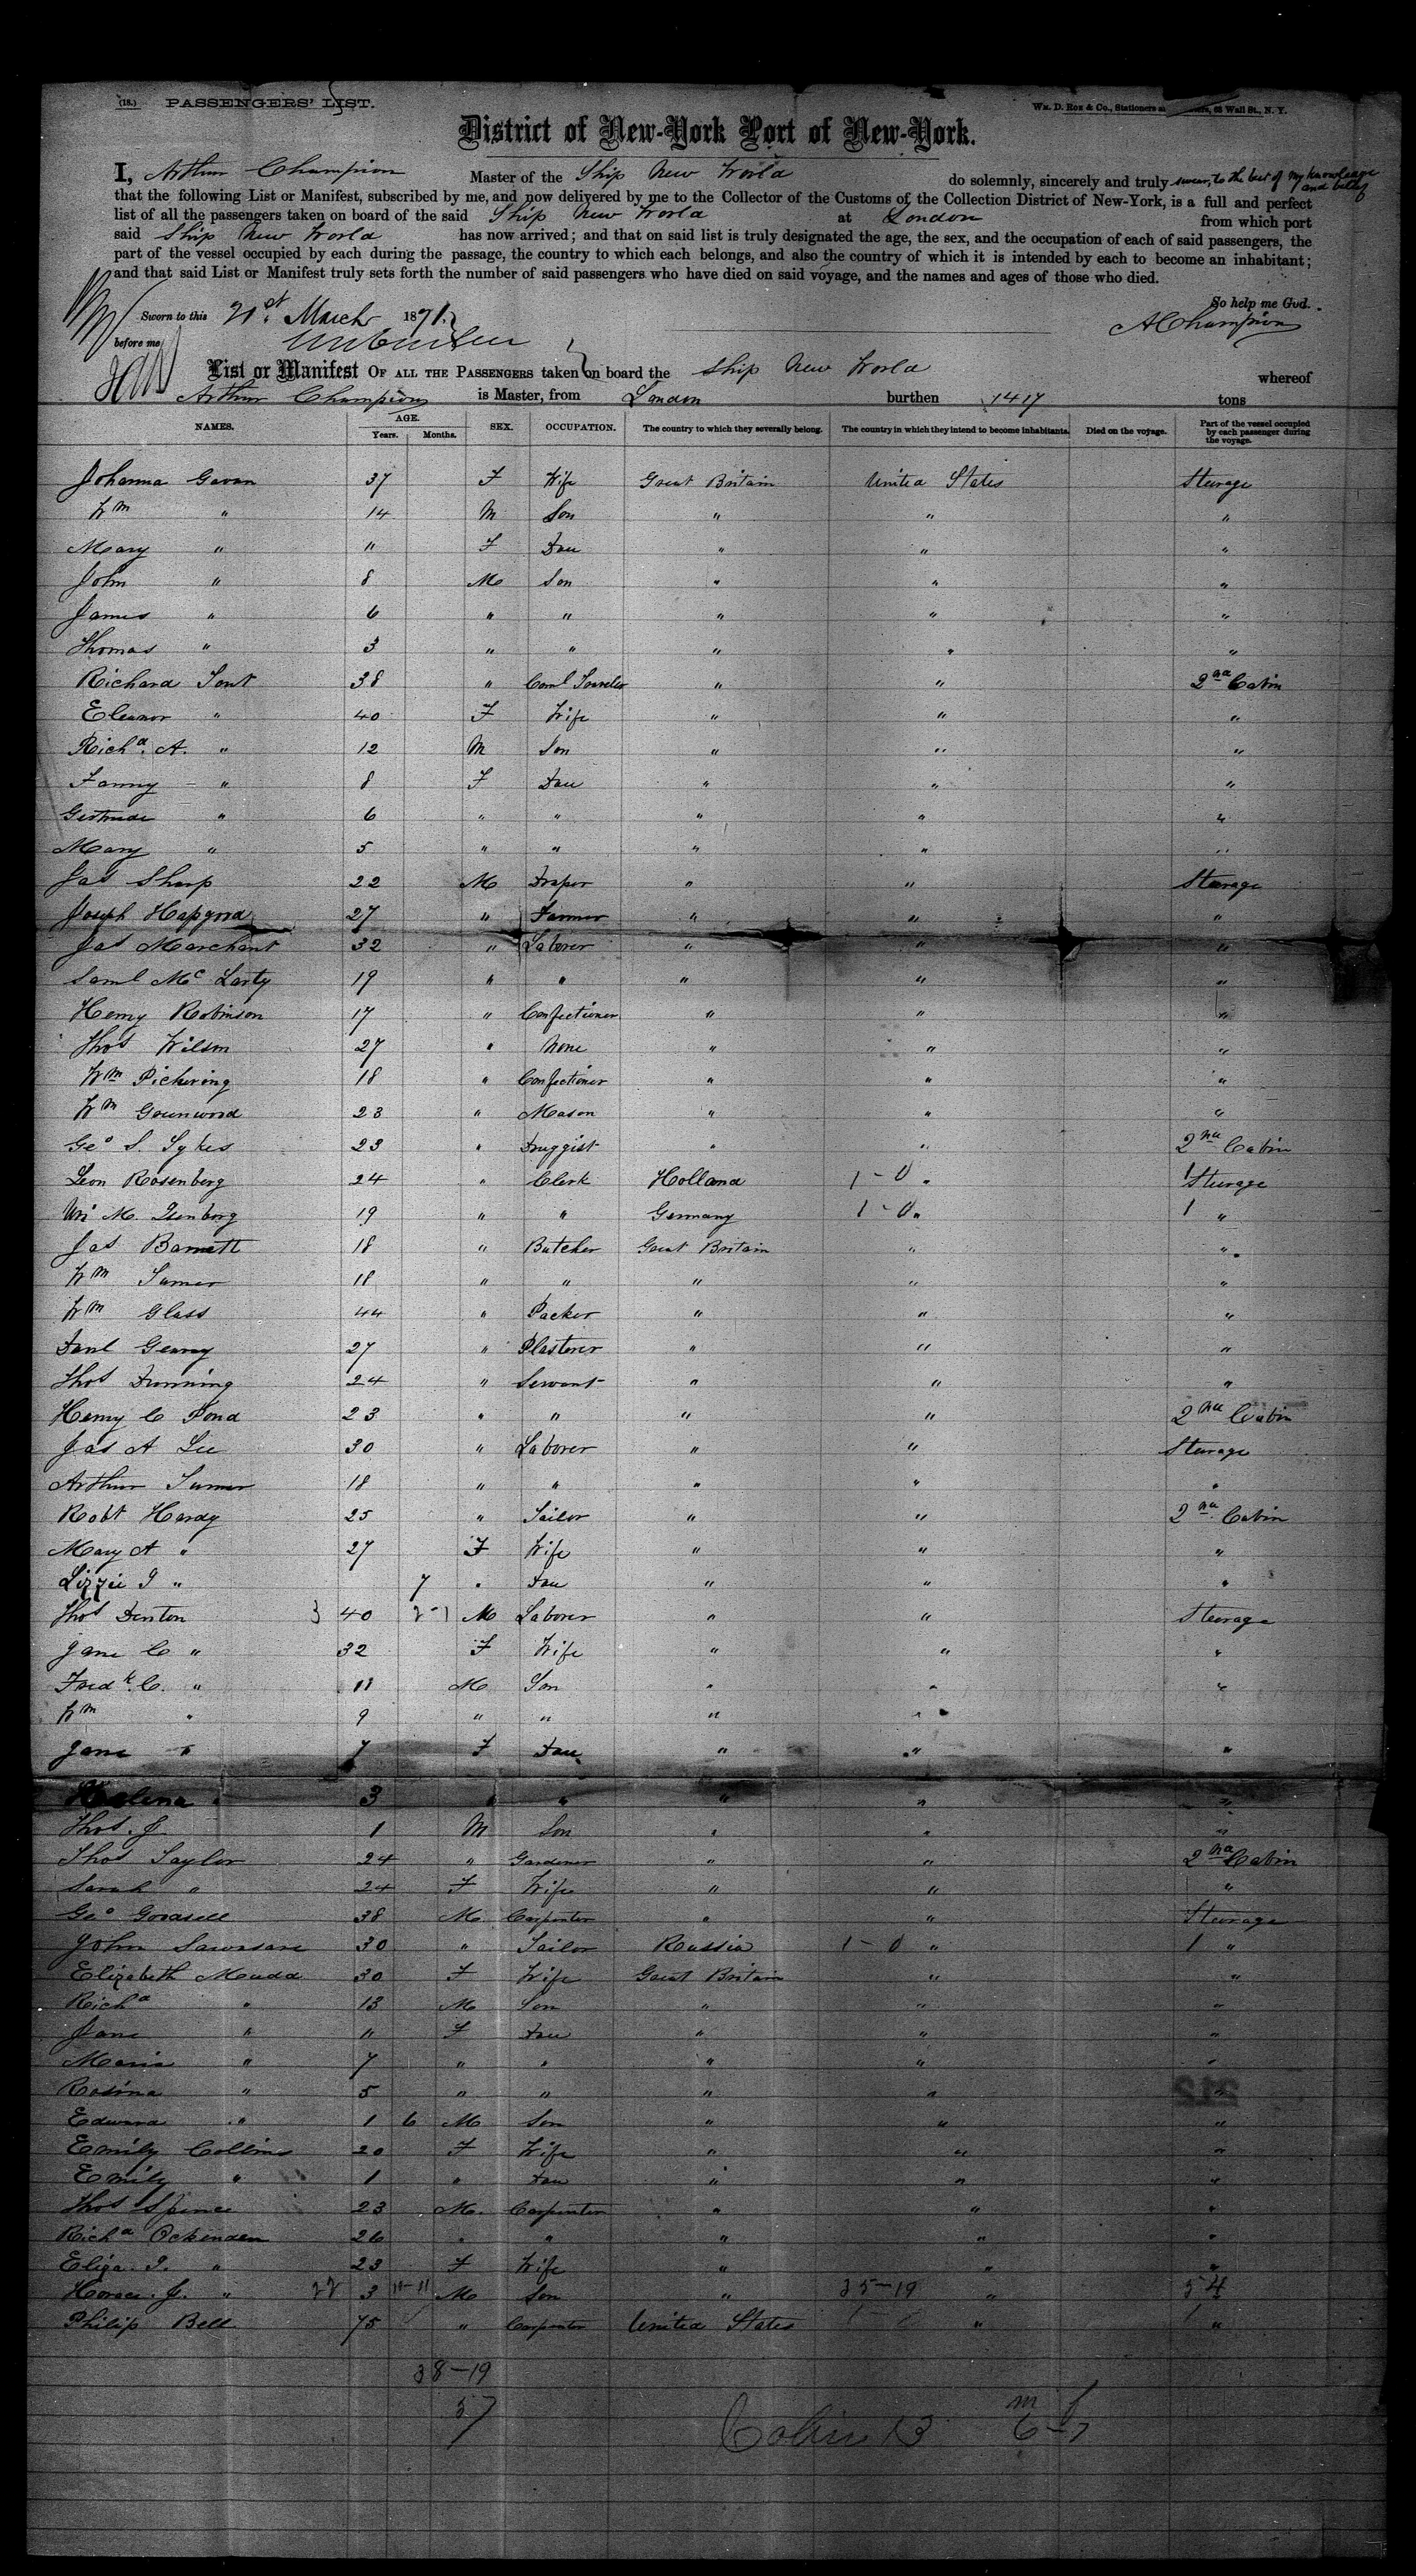 (18.) PASSENGERS' LIST.
Wm. D. Roe & Co., Stationers 63 Wall St., N. Y.
District of New-York Port of New-York.
I, Arthur Champion Master of the Ship New World do solemnly, sincerely and truly swear, to the best of my knowledge and belief
that the following List or Manifest, subscribed by me, and now delivered by me to the Collector of the Customs of the Collection District of New-York, is a full and perfect
list of all the passengers taken on board of the said Ship New World at London from which port
said Ship New World has now arrived; and that on said list is truly designated the age, the sex, and the occupation of each of said passengers, the
part of the vessel occupied by each during the passage, the country to which each belongs, and also the country of which it is intended by each to become an inhabitant;
and that said List or Manifest truly sets forth the number of said passengers who have died on said voyage, and the names and ages of those who died.
So help me God.
Sworn to this 21st March 1871. AChampion
before me
List or Manifest OF ALL THE PASSENGERS taken on board the Ship New World whereof
Arthur Champion is Master, from London burthen 1417 tons
NAMES. AGE. Years. Months. SEX. OCCUPATION. The country to which they severally belong. The country in which they intend to become inhabitants. Died on the voyage. Part of the vessel occupied by each passenger during the voyage.
Johanna Gavan 37 F Wife Great Britain United States Sturage
Wm " 14 M Son " " "
Mary " 11 F Dau " " "
John " 8 M Son " " "
James " 6 " " " " "
Thomas " 3 " " " " "
Richard Tout 38 " Coml Traveler " " 2nd Cabin
Eleanor " 40 F Wife " " "
Richd. A. " 12 M Son " " "
Fanny " 8 F Dau " " "
Gertrude " 6 " " " " "
Mary " 5 " " " " "
Jas Sharp 22 M Draper " " Sturage
Joseph Hapgood 27 " Farmer " " "
Jas Marchant 32 " Laborer " " "
Saml Mc Larty 19 " " " " "
Henry Robinson 17 " Confectioner " " "
Thos Wilson 27 " None " " "
Wm Pickering 18 " Confectioner " " "
Wm Greenwood 23 " Mason " " "
Geo S. Sykes 23 " Druggist " " 2nd Cabin
Leon Rosenberg 24 " Clerk Holland 1-0 " 1 Sturage
M. Isenberg 19 " " Germany 1-0 " 1 "
Jas Barnett 18 " Butcher Great Britain " "
Wm Turner 18 " " " " "
Wm Glass 44 " Packer " " "
Danl Geary 27 " Plasterer " " "
Thos Dunning 24 " Servant " " "
Henry C Pond 23 " " " " 2nd Cabin
Jas A Lee 30 " Laborer " " Sturage
Arthur Turner 18 " " " " "
Robt Hardy 25 " Tailor " " 2nd Cabin
Mary A " 27 F Wife " " "
Lizzie J " 7 " Dau " " "
Thos Denton 3 40 2-1 M Laborer " " Sturage
Jane C " 32 F Wife " " "
Fredk. C. " 11 M Son " " "
Wm " 9 " " " " "
Jane " 7 F Dau " " "
Helena " 3 " " " " "
Thos. J 1 M Son " " "
Thos Taylor 24 " Gardener " " 2nd Cabin
Sarah " 24 F Wife " " "
Geo Goodsell 38 M Carpenter " " Sturage
John 30 " Tailor Russia 1-0 " 1 "
Elizabeth Mudd 30 F Wife Great Britain " "
Richd " 13 M Son " " "
Jane " 11 F Dau " " "
Maria " 7 " " " " "
Rosina " 5 " " " " "
Edward " 1 6 M Son " " "
Emily Collins 20 F Wife " " "
Emily " 1 " Dau " " "
Thos Spence 23 M. Carpenter " " "
Richd Ockenden 26 " " " " "
Eliza. J. " 23 F Wife " " "
Horace. J. " 22 3 11-11 M Son " 35-19 " 54
Philip Bell 75 " Carpenter United States " "
38-19
57
Cabin 13 m f
6-7